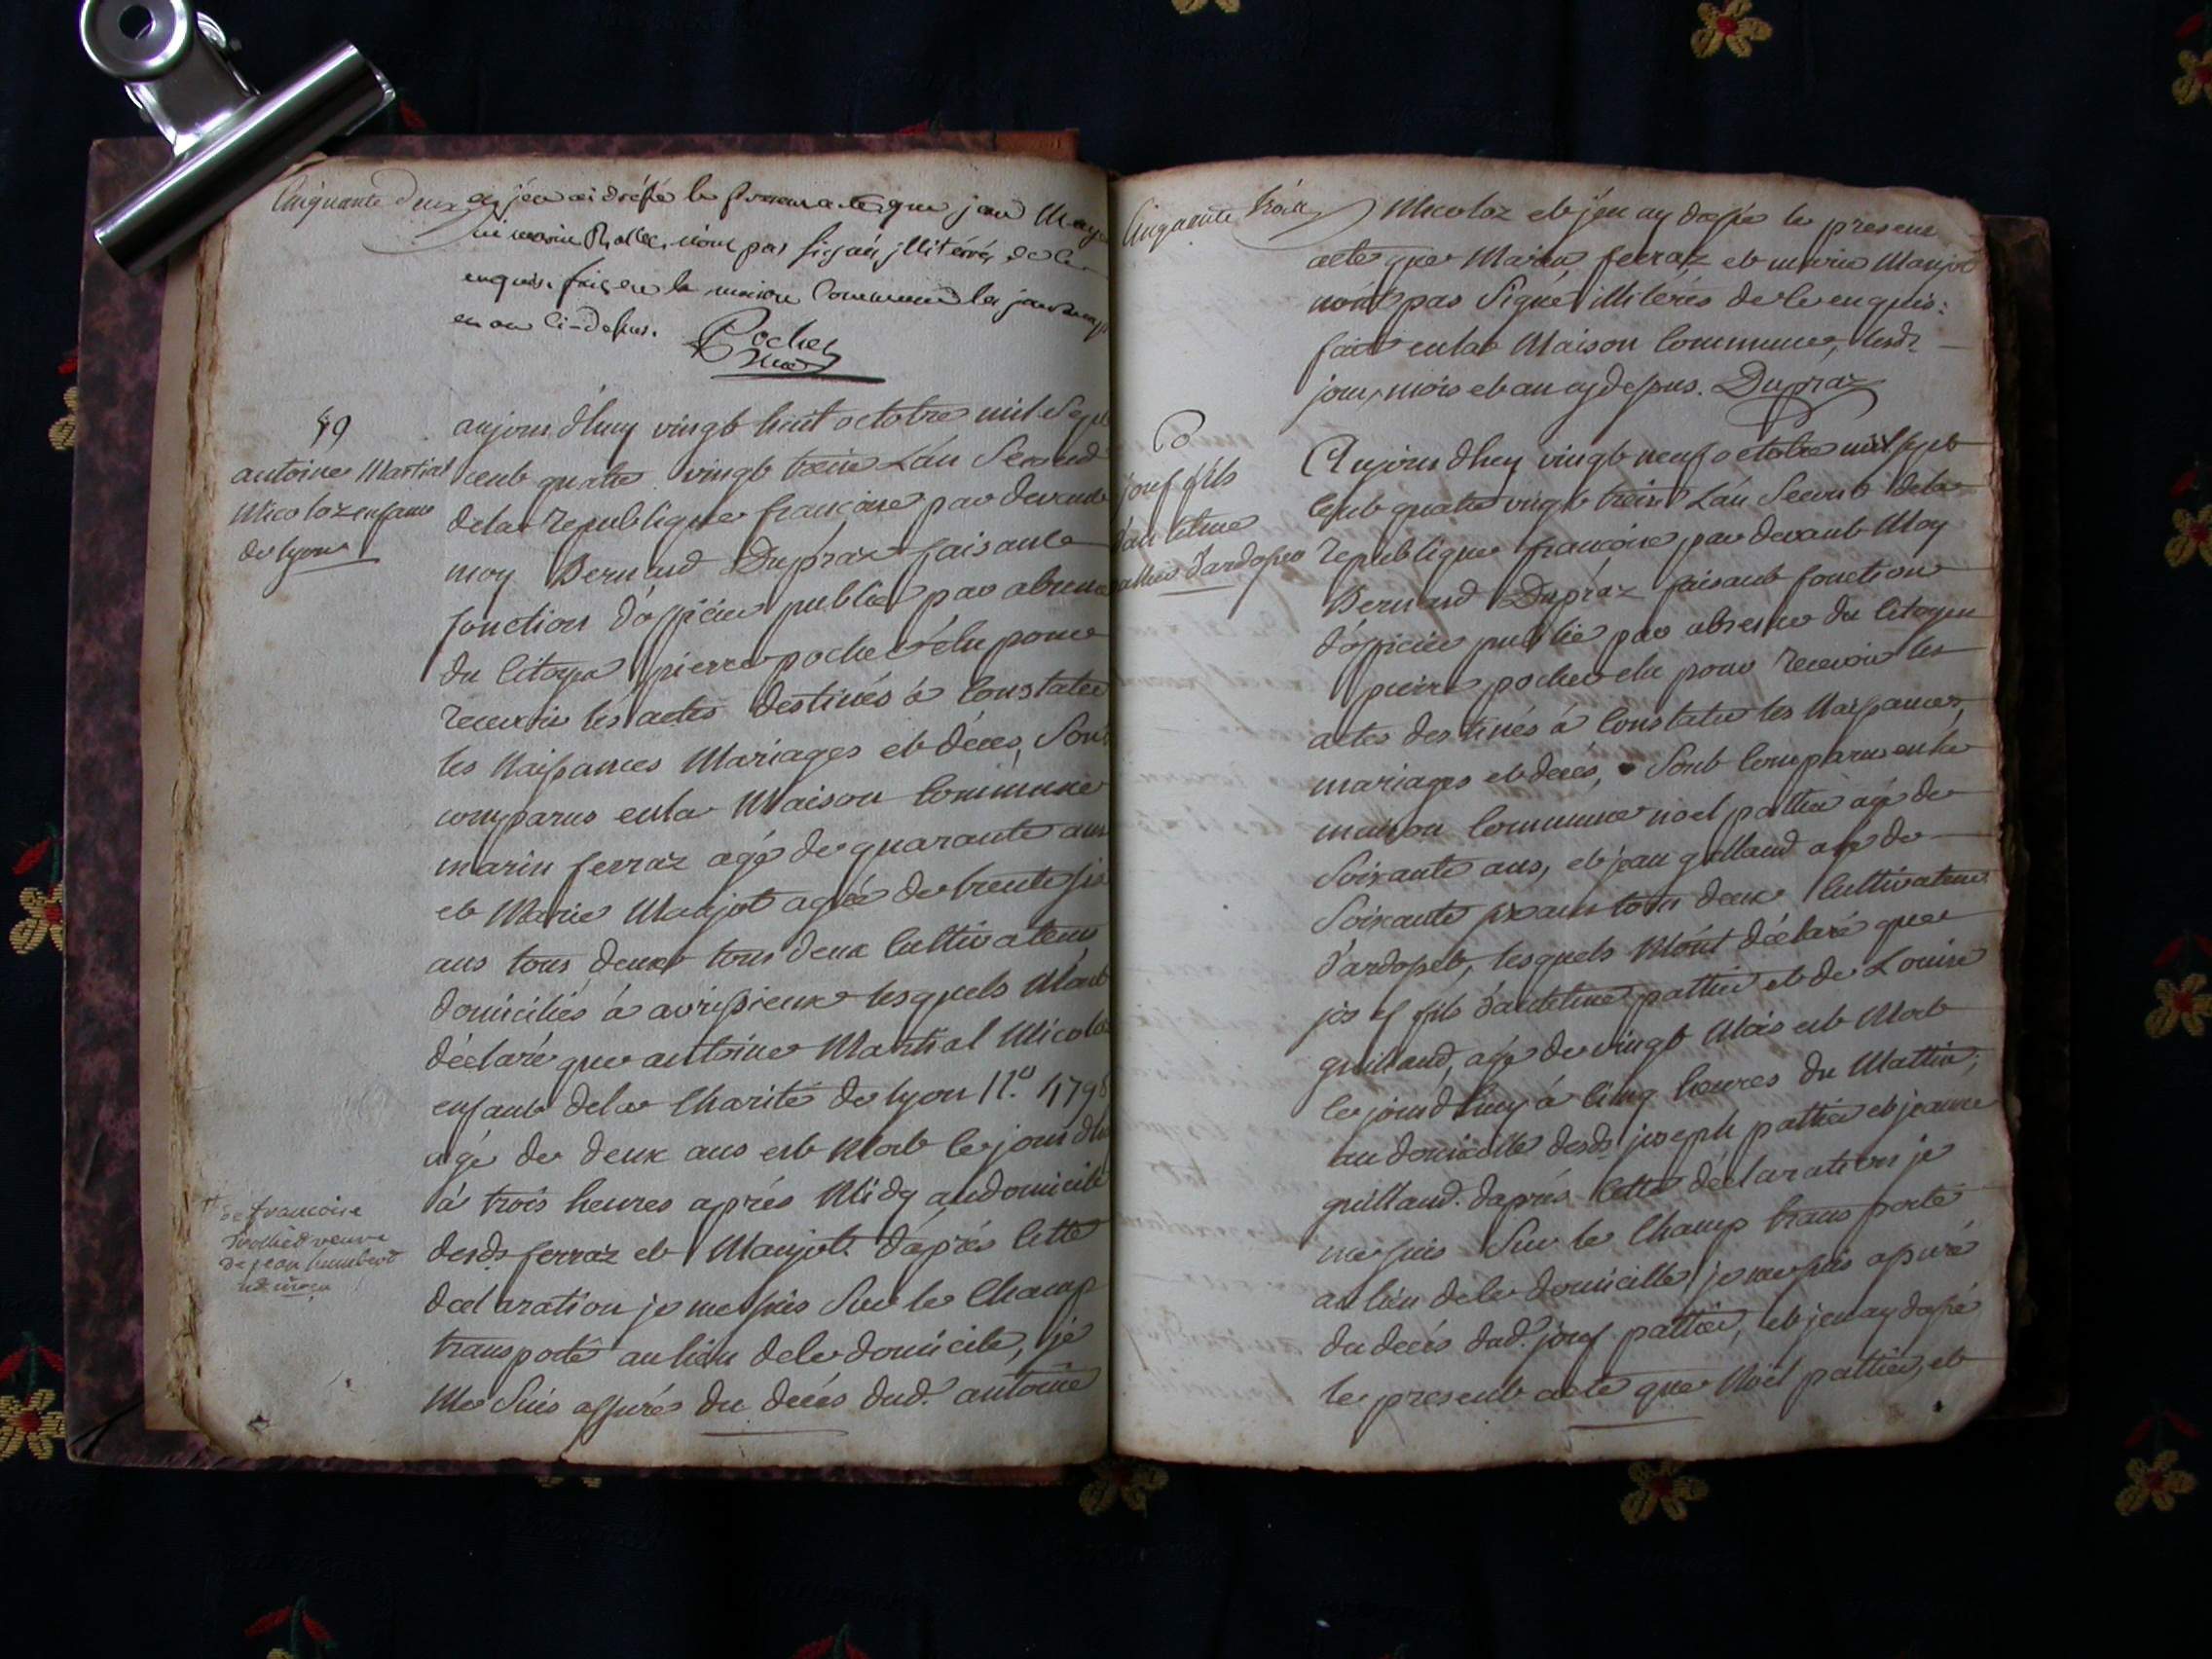 Cinquante deux et j'en ai dressé le present acte que jean May
ni marie Rollet n'ont pas signés illiterés de ce
enquis. fais en la maison Commune les jour mois
en an ci-dessus. Pochet
89
antoine Martial
Micoloz enfant
de lyon
aujourd'huy vingt huit octobre mil sept
cent quatre vingt treize L'an Second
de la republique françoise par devant
moy Bernard Dupraz faisant
fonction d'officier public par absence
du Citoyen pierre pochet élu pour
recevoir les actes destinés à Constater
les Naissances Mariages et décès, Sont
comparus en la Maison Commune
marin ferraz agé de quarante ans
et Marie Manjot agée de trente six
ans tous deux tous deux Cultivateurs
domiciliés à avressieux lesquels M'ont
déclaré que antoine Martial Micoloz
enfant de la Charité de lyon N.o 4798
agé de deux ans est Mort le jour d'huy
à trois heures après Midy au domicile
desds ferraz et Manjot. d'après Cette
déclaration je me suis Sur le Champ
transporté au lieu de le domicile, je
Me Suis assuré du décès dud. antoine
de francoise
veuve
de jean humbert
Cinquante trois
Micoloz et j'en ay dressé le present
acte que Marin ferraz et marie Manjot
n'ont pas Signé illiterés de le enquis:
fait en la Maison Commune, lesds
jour, mois et an cy dessus. Dupraz
josef fils
d'antelme
pattier d'ardosset
Aujourd'huy vingt neuf octobre mil sept
Cent quatre vingt treize L'an Second de la
republique françoise par devant Moy
Bernard Dupraz faisant fonction
d'officier public par absence du Citoyen
pierre pochet elu pour recevoir les
actes destinés à Constater les Naissances,
mariages et décès, Sont Comparus en la
maison Commune noel pattier agé de
Soixante ans, et jean guilland agé de
Soixante six ans tous deux Cultivateurs
d'ardosset, lesquels M'ont déclaré que
josef fils d'antelme pattier et de Louise
guilland, agé de vingt Mois est Mort
le jourd'huy à Cinq heures du Mattin,
au domicille desds joseph pattier et jeanne
guilland. d'après Cette déclaration je
me suis Sur le Champ transporté
au lieu de le domicille je me suis assuré
du décès dud. josef pattier, et j'en ay dressé
le present acte que Noël pattier, et